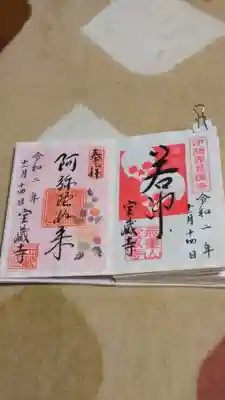 令和二年
十一月十四日
若冲
宝蔵寺
奉拝
阿弥陀如来
令和二年
十一月十四日
宝蔵寺